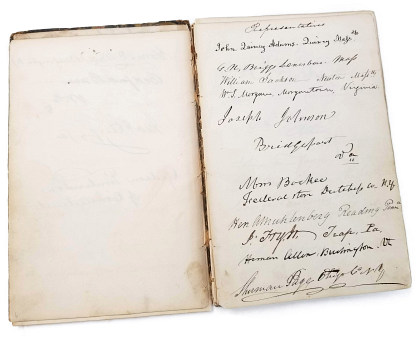 Representatives
John Quincy Adams. Quincy Mass
G. N. Briggs Lanesboro' Mass
William Jackson Newton Mass
W. S. Morgan Morgantown, Virginia
Joseph Johnson
Bridgeport
Va
Abm Bockee
Federal Store Dutchess Co N.Y.
Hon. A Muhlenberg Reading Penn
J. Fry Jr. Trap, Pa
Heman Allen Burlington, Vt
Sherman Page Otsego Co N.Y